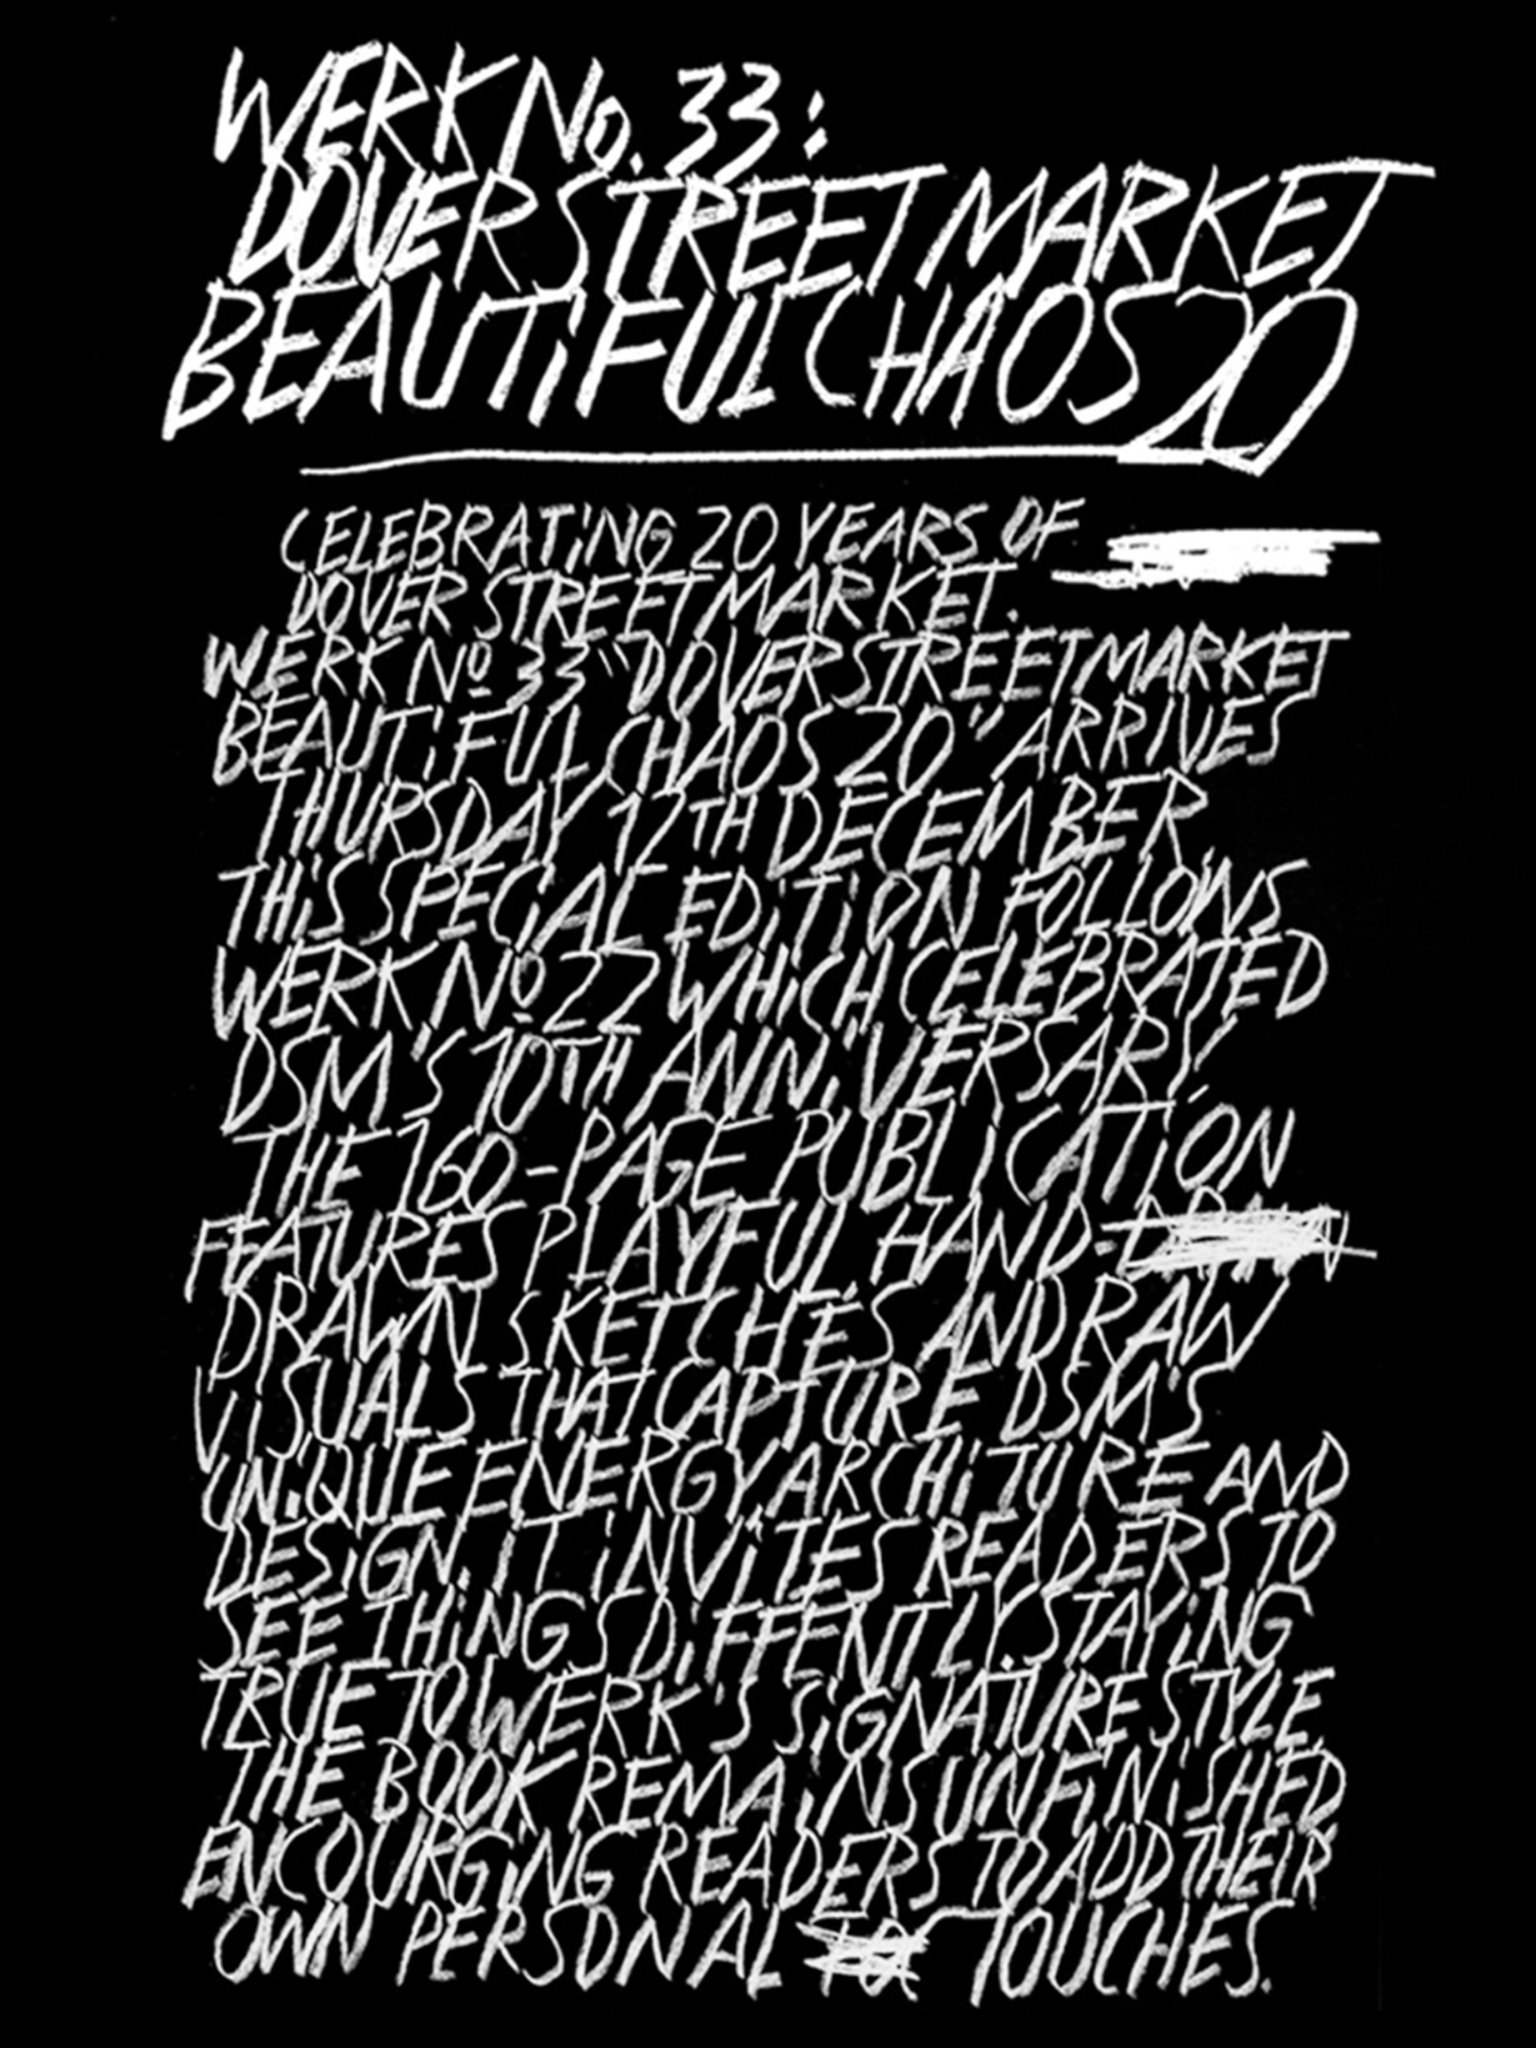 WERK No. 33:
DOVER STREET MARKET
BEAUTiFUL CHAOS 20
CELEBRATiNG 20 YEARS OF
DOVER STREET MARKET.
WERK Nº 33 "DOVER STREET MARKET
BEAUTiFUL CHAOS 20" ARRIVES
THURSDAY 12TH DECEMBER
THiS SPECiAL EDiTiON FOLLOWS
WERK Nº 22 WHiCH CELEBRATED
DSM'S 10TH ANNiVERSARY.
THE 160-PAGE PUBLiCATiON
FEATURES PLAYFUL HAND-DRAWN
DRAWN SKETCHES AND RAW
ViSUALS THAT CAPTURE DSM'S
UNiQUE ENERGY ARCHiTURE AND
DESiGN. iT iNViTES READERS TO
SEE THiNGS DiFFENTLY. STAYiNG
TRUE TO WERK'S SiGNATURE STYLE,
THE BOOK REMAiNS UNFiNiSHED,
ENCOURGiNG READERS TO ADD THEIR
OWN PERSONAL TOUCHES.